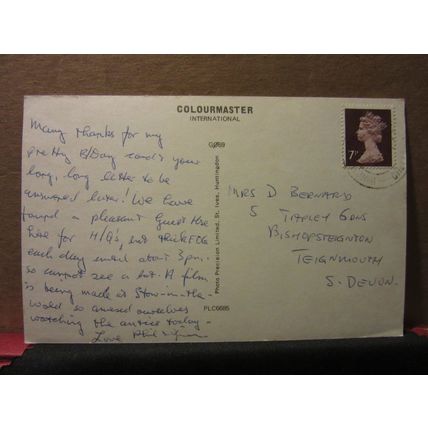 COLOURMASTER
INTERNATIONAL
Many thanks for my
pretty B/Day card & your
long, long letter to be
answered later! We have
found a pleasant Guest Hse
here for H/Q's, but thick FOG
each day until about 3pm.
so cannot see a lot. A film
is being made at Stow-in-the-
Wold so amused ourselves
watching the antics today -
Love Phil
GØ69
Photo Precision Limited, St. Ives, Huntingdon
PLC6685
7P
MRS D BERNARD
5 TAPLEY GDNS
BISHOPSTEIGNTON
TEIGNMOUTH
S. DEVON.